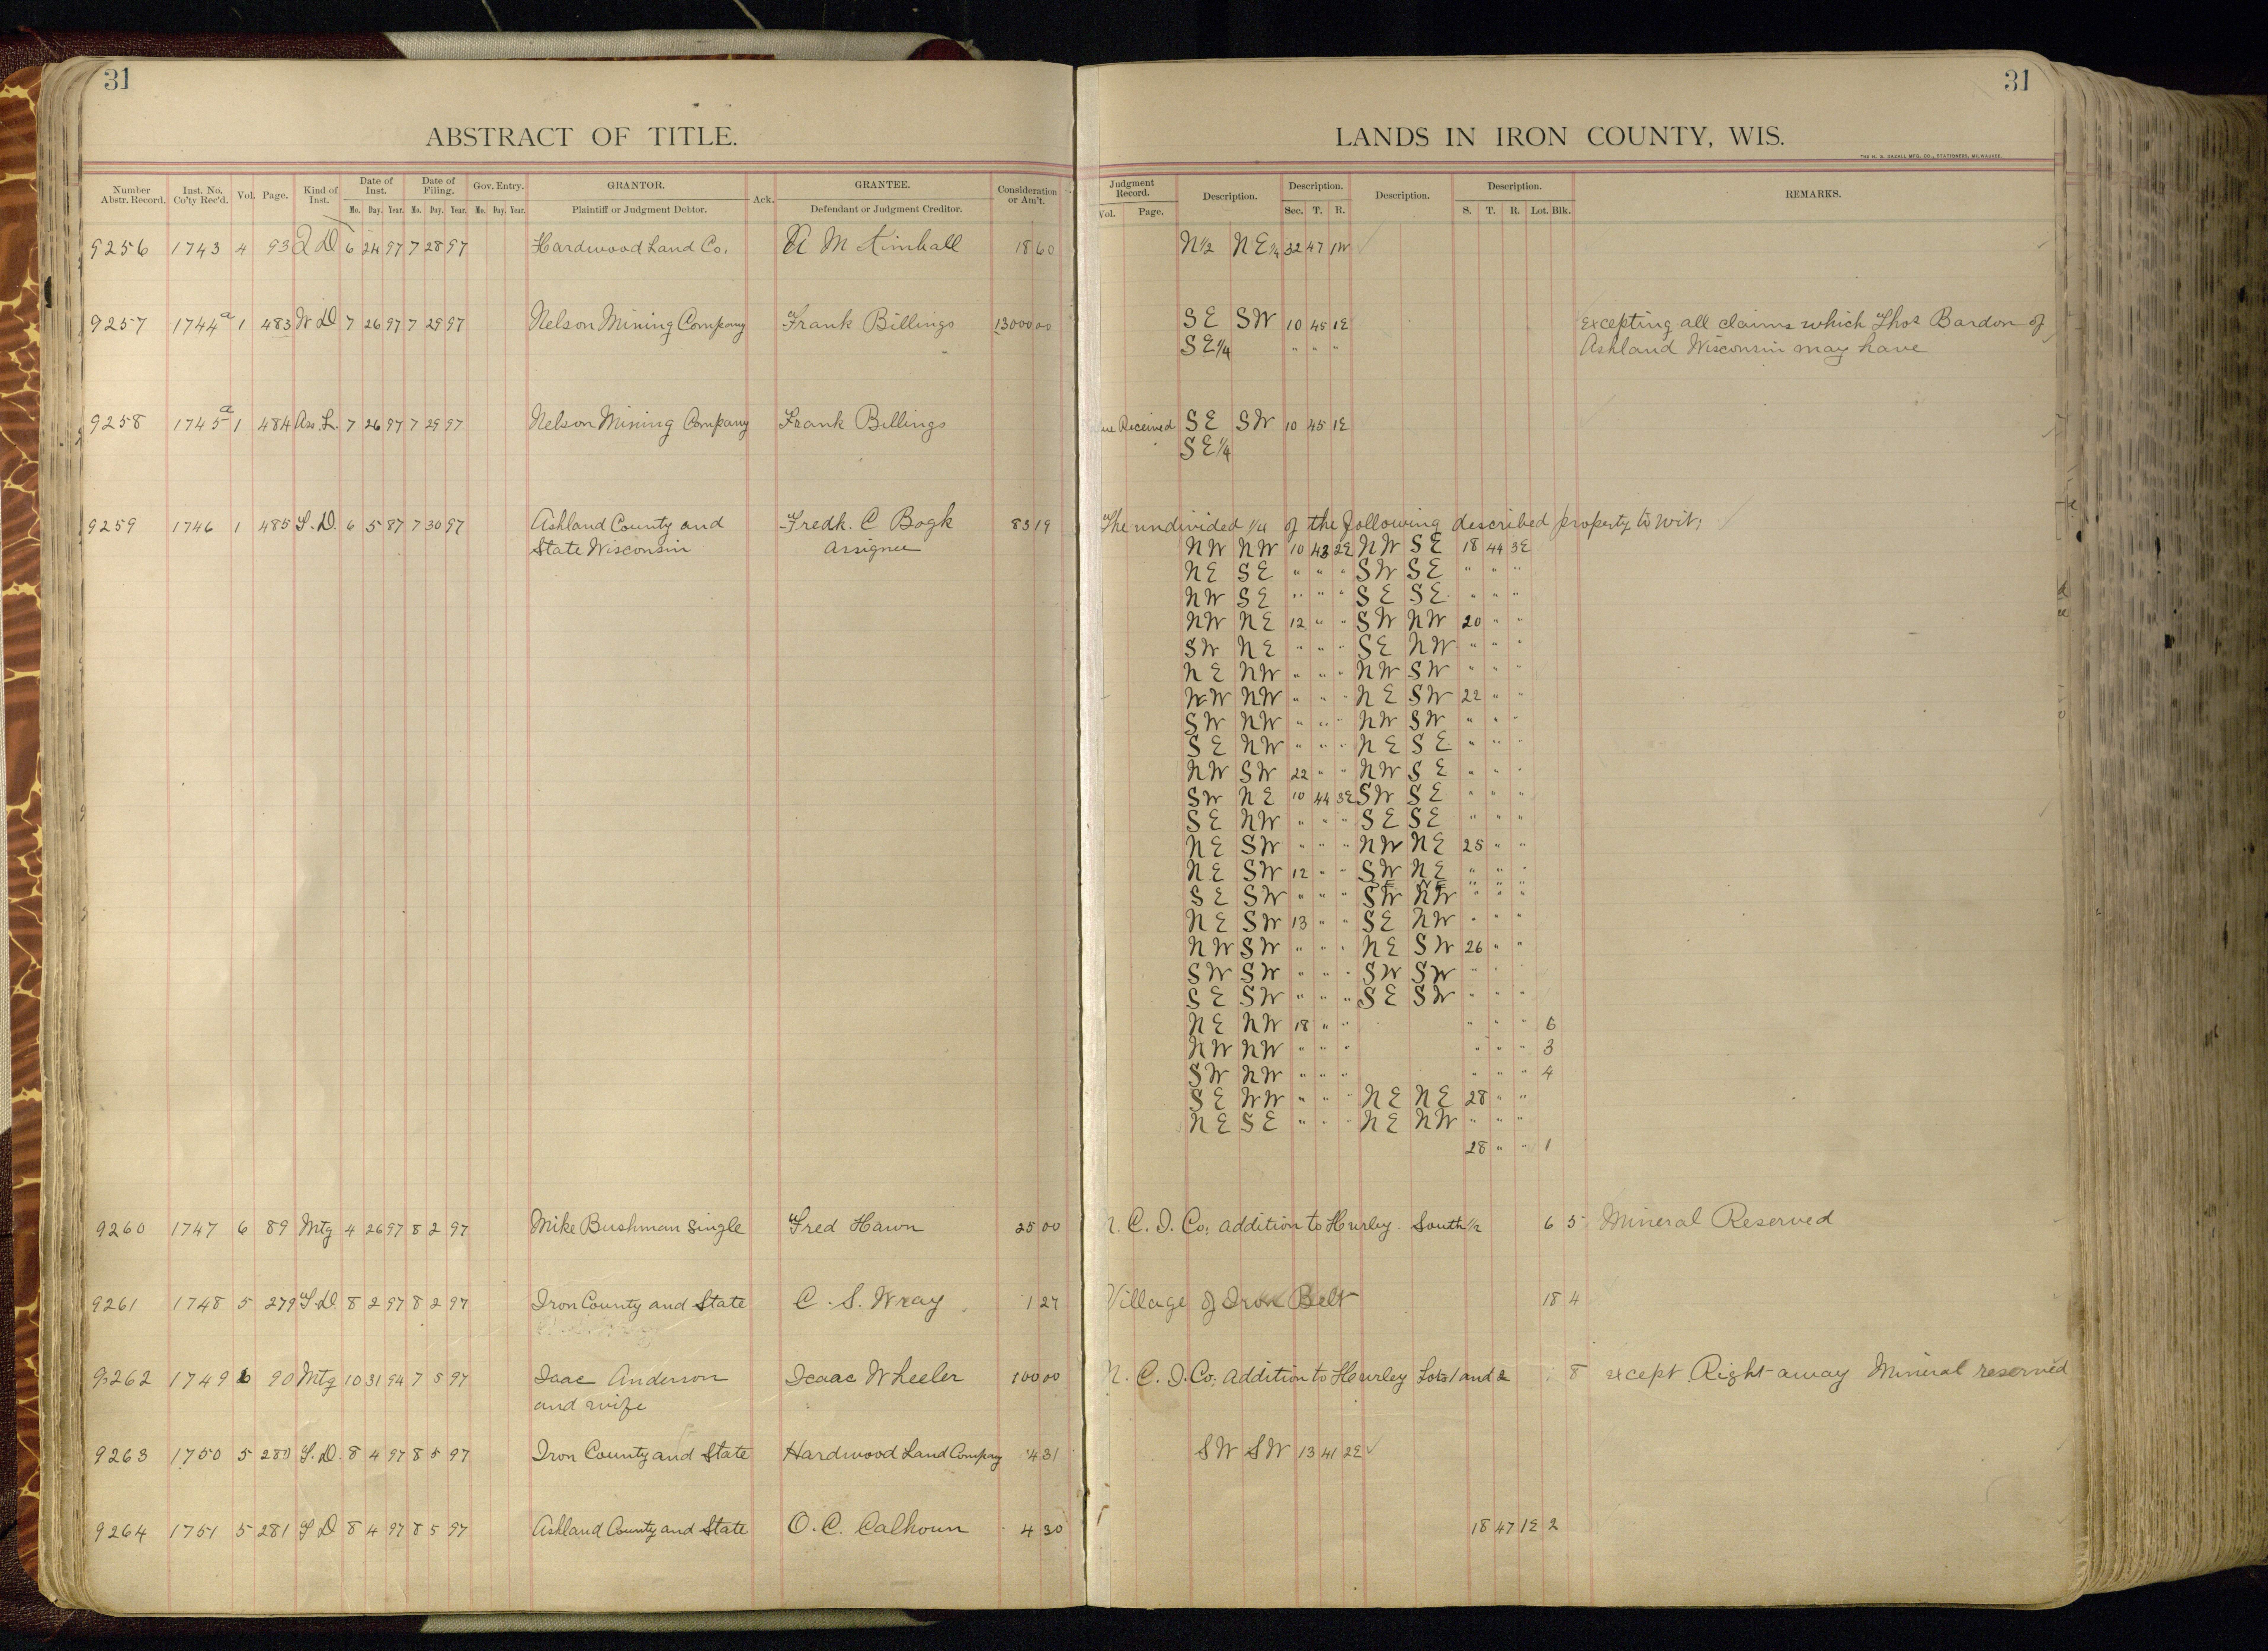 31
31
ABSTRACT OF TITLE.
LANDS IN IRON COUNTY, WIS.
Number Abstr. Record. Inst. No. Co'ty Rec'd. Vol. Page. Kind of Inst. Date of Inst. Mo. Day. Year. Date of Filing. Mo. Day. Year. Gov. Entry. Mo. Day. Year. GRANTOR. Plaintiff or Judgment Debtor. Ack. GRANTEE. Defendant or Judgment Creditor. Consideration or Am't.
Judgment Record. Vol. Page. Description. Description. Sec. T. R. Description. Description. S. T. R. Lot. Blk. REMARKS.
9256 1743 4 93 Q D 6 24 97 7 28 97 Hardwood Land Co. A M Kimball 18 60 N½ NE¼ 32 47 1W
9257 1744a 1 483 W D 7 26 97 7 29 97 Nelson Mining Company Frank Billings 13000 00 SE SW 10 45 1E Excepting all claims which Thos Bardon of
SE¼ " " " Ashland Wisconsin may have
9258 1745a 1 484 Ass. L. 7 26 97 7 29 97 Nelson Mining Company Frank Billings Received SE SW 10 45 1E
SE¼
9259 1746 1 485 T. D. 6 5 87 7 30 97 Ashland County and Fredk. C Bogk 83 19 The undivided ¼ of the following described property to wit;
State Wisconsin assignee NW NW 10 43 2E NW SE 18 44 3E
NE SE " " " SW SE " " "
NW SE " " " SE SE " " "
NW NE 12 " " SW NW 20 " "
SW NE " " " SE NW " " "
NE NW " " " NW SW " " "
NW NW " " " NE SW 22 " "
SW NW " " " NW SW " " "
SE NW " " " NE SE " " "
NW SW 22 " " NW SE " " "
SW NE 10 44 3E SW SE " " "
SE NW " " " SE SE " " "
NE SW " " " NW NE 25 " "
NE SW 12 " " SW NE " " "
SE NE " " "
SE SW " " " SW NW " " "
NE SW 13 " " SE NW " " "
NW SW " " " NE SW 26 " "
SW SW " " " SW SW " " "
SE SW " " " SE SW " " "
NE NW 18 " " " " " 6
NW NW " " " " " " 3
SW NW " " " " " " 4
SE NW " " " NE NE 28 " "
NE SE " " " NE NW " " "
28 " " 1
9260 1747 6 89 Mtg 4 26 97 8 2 97 Mike Bushman single Fred Hawn 25 00 N. C. I. Co; addition to Hurley South ½ 6 5 Mineral Reserved
9261 1748 5 279 T. D. 8 2 97 8 2 97 Iron County and State C. S. Wray 1 27 Village of Iron Belt 18 4
9262 1749 6 90 Mtg 10 31 94 7 5 97 Isac Anderson Isaac Wheeler 100 00 N. C. I. Co; addition to Hurley Lots 1 and 2 8 except Right-away Mineral reserved
and wife
9263 1750 5 280 T. D. 8 4 97 8 5 97 Iron County and State Hardwood Land Company 4 31 SW SW 13 41 2E
9264 1751 5 281 T D 8 4 97 8 5 97 Ashland County and State O. C. Calhoun 4 30 18 47 1E 2